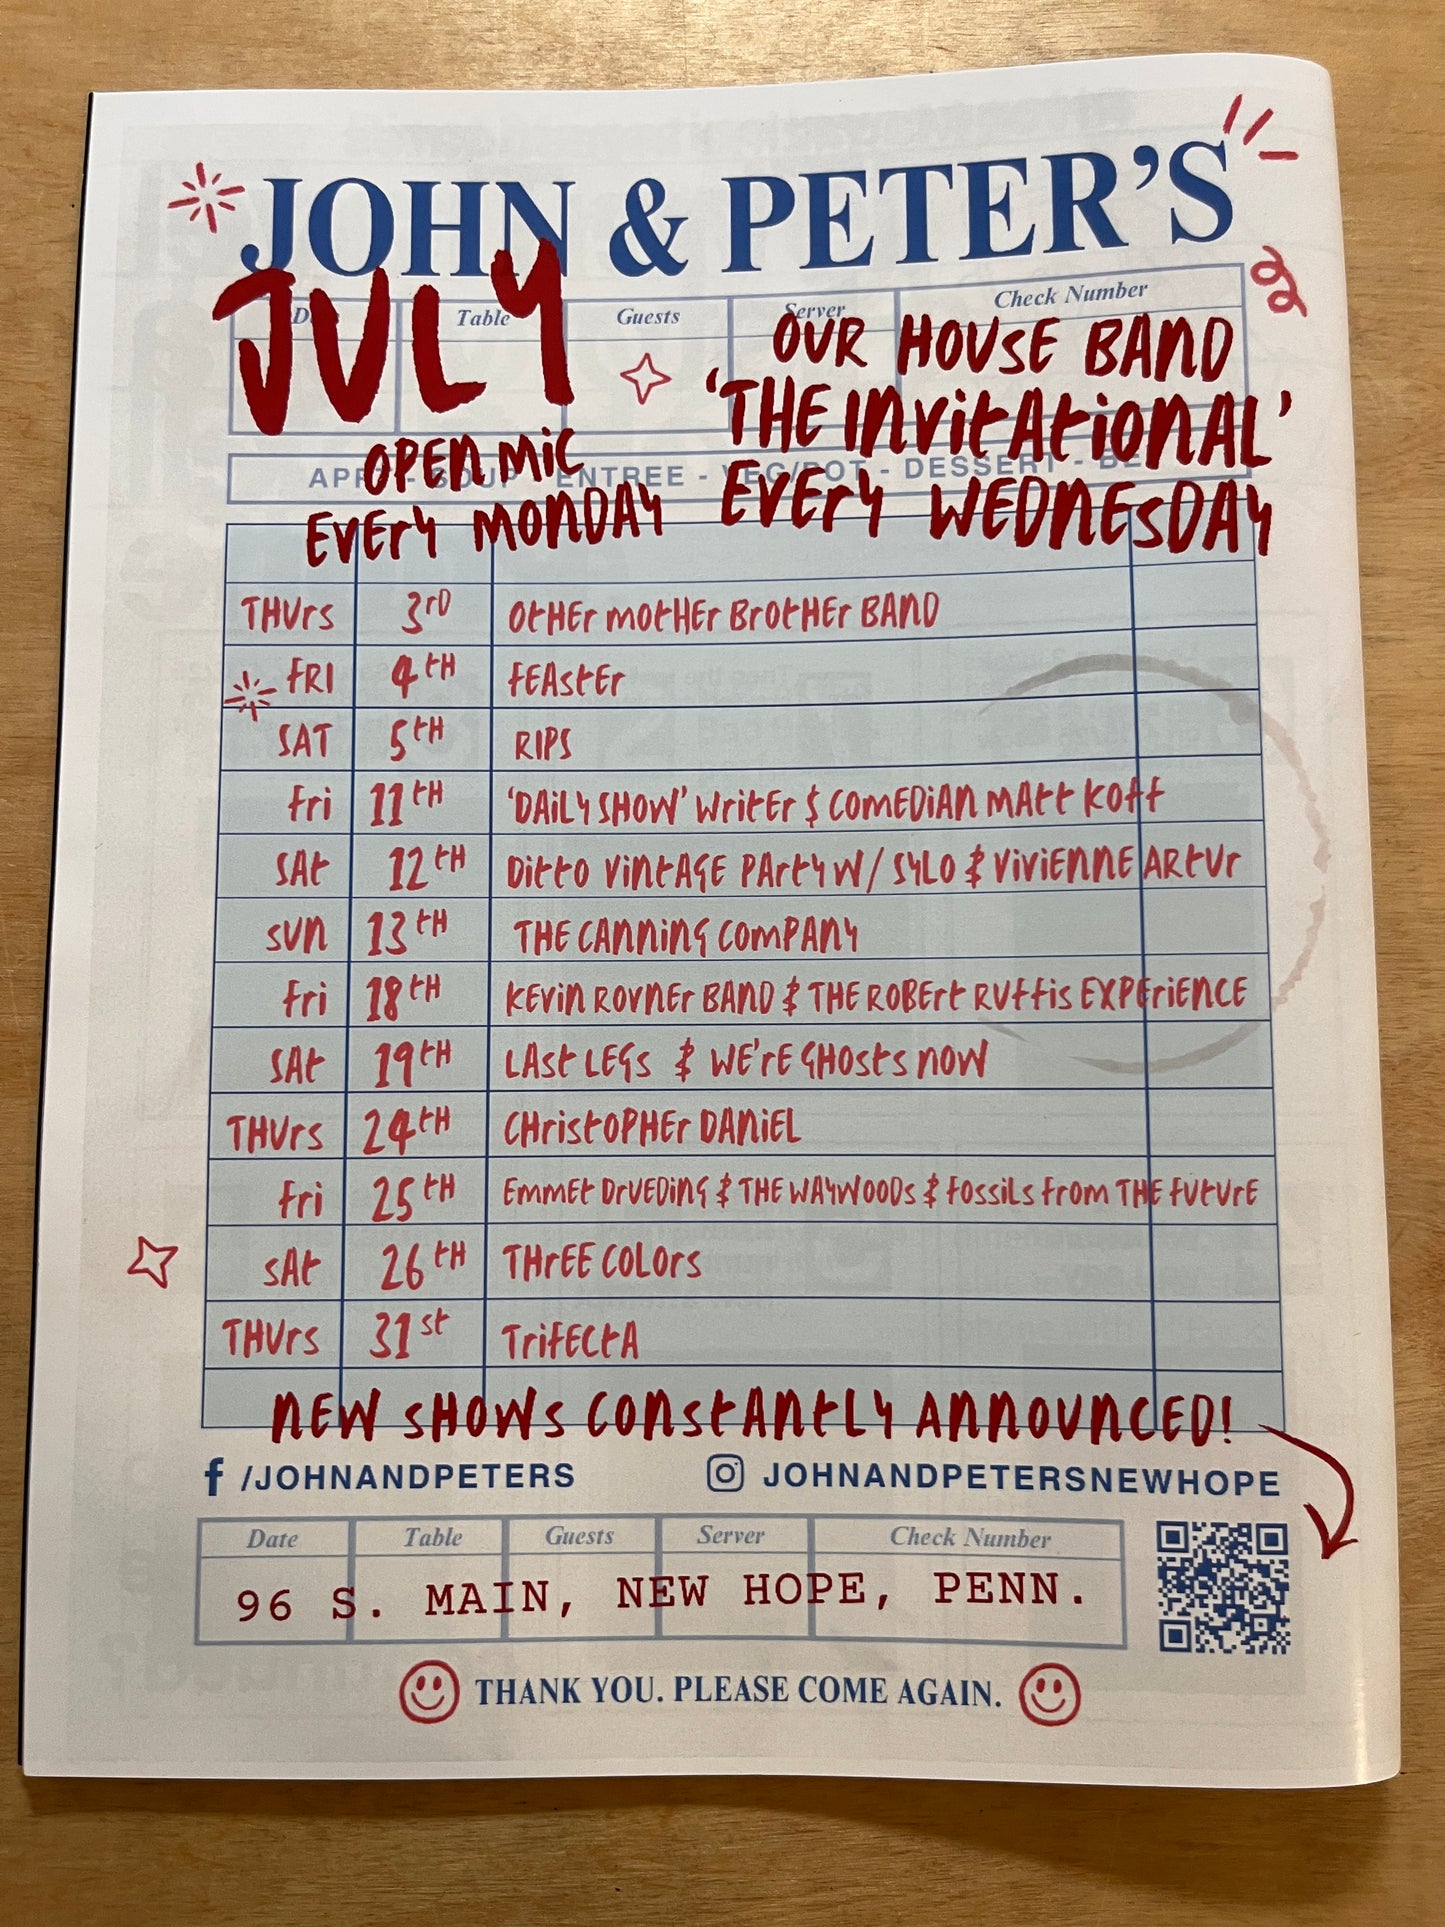 JOHN & PETER'S
JULY
Table Guests Server Check Number
OUR HOUSE BAND
'THE INVITATIONAL'
EVERY WEDNESDAY
OPEN MIC
EVERY MONDAY
ENTREE - VEG/POT - DESSERT - BE
THURS 3RD OTHER MOTHER BROTHER BAND
FRI 4TH FEASTER
SAT 5TH RIPS
FRI 11TH 'DAILY SHOW' WRITER & COMEDIAN MATT KOFF
SAT 12TH DITTO VINTAGE PARTY W/ SYLO & VIVIENNE ARTUR
SUN 13TH THE CANNING COMPANY
FRI 18TH KEVIN ROVNER BAND & THE ROBERT RUFFIS EXPERIENCE
SAT 19TH LAST LEGS & WE'RE GHOSTS NOW
THURS 24TH CHRISTOPHER DANIEL
FRI 25TH EMMET DRUEDING & THE WAYWOODS & FOSSILS FROM THE FUTURE
SAT 26TH THREE COLORS
THURS 31ST TRIFECTA
NEW SHOWS CONSTANTLY ANNOUNCED!
/JOHNANDPETERS JOHNANDPETERSNEWHOPE
Date Table Guests Server Check Number
96 S. MAIN, NEW HOPE, PENN.
THANK YOU. PLEASE COME AGAIN.